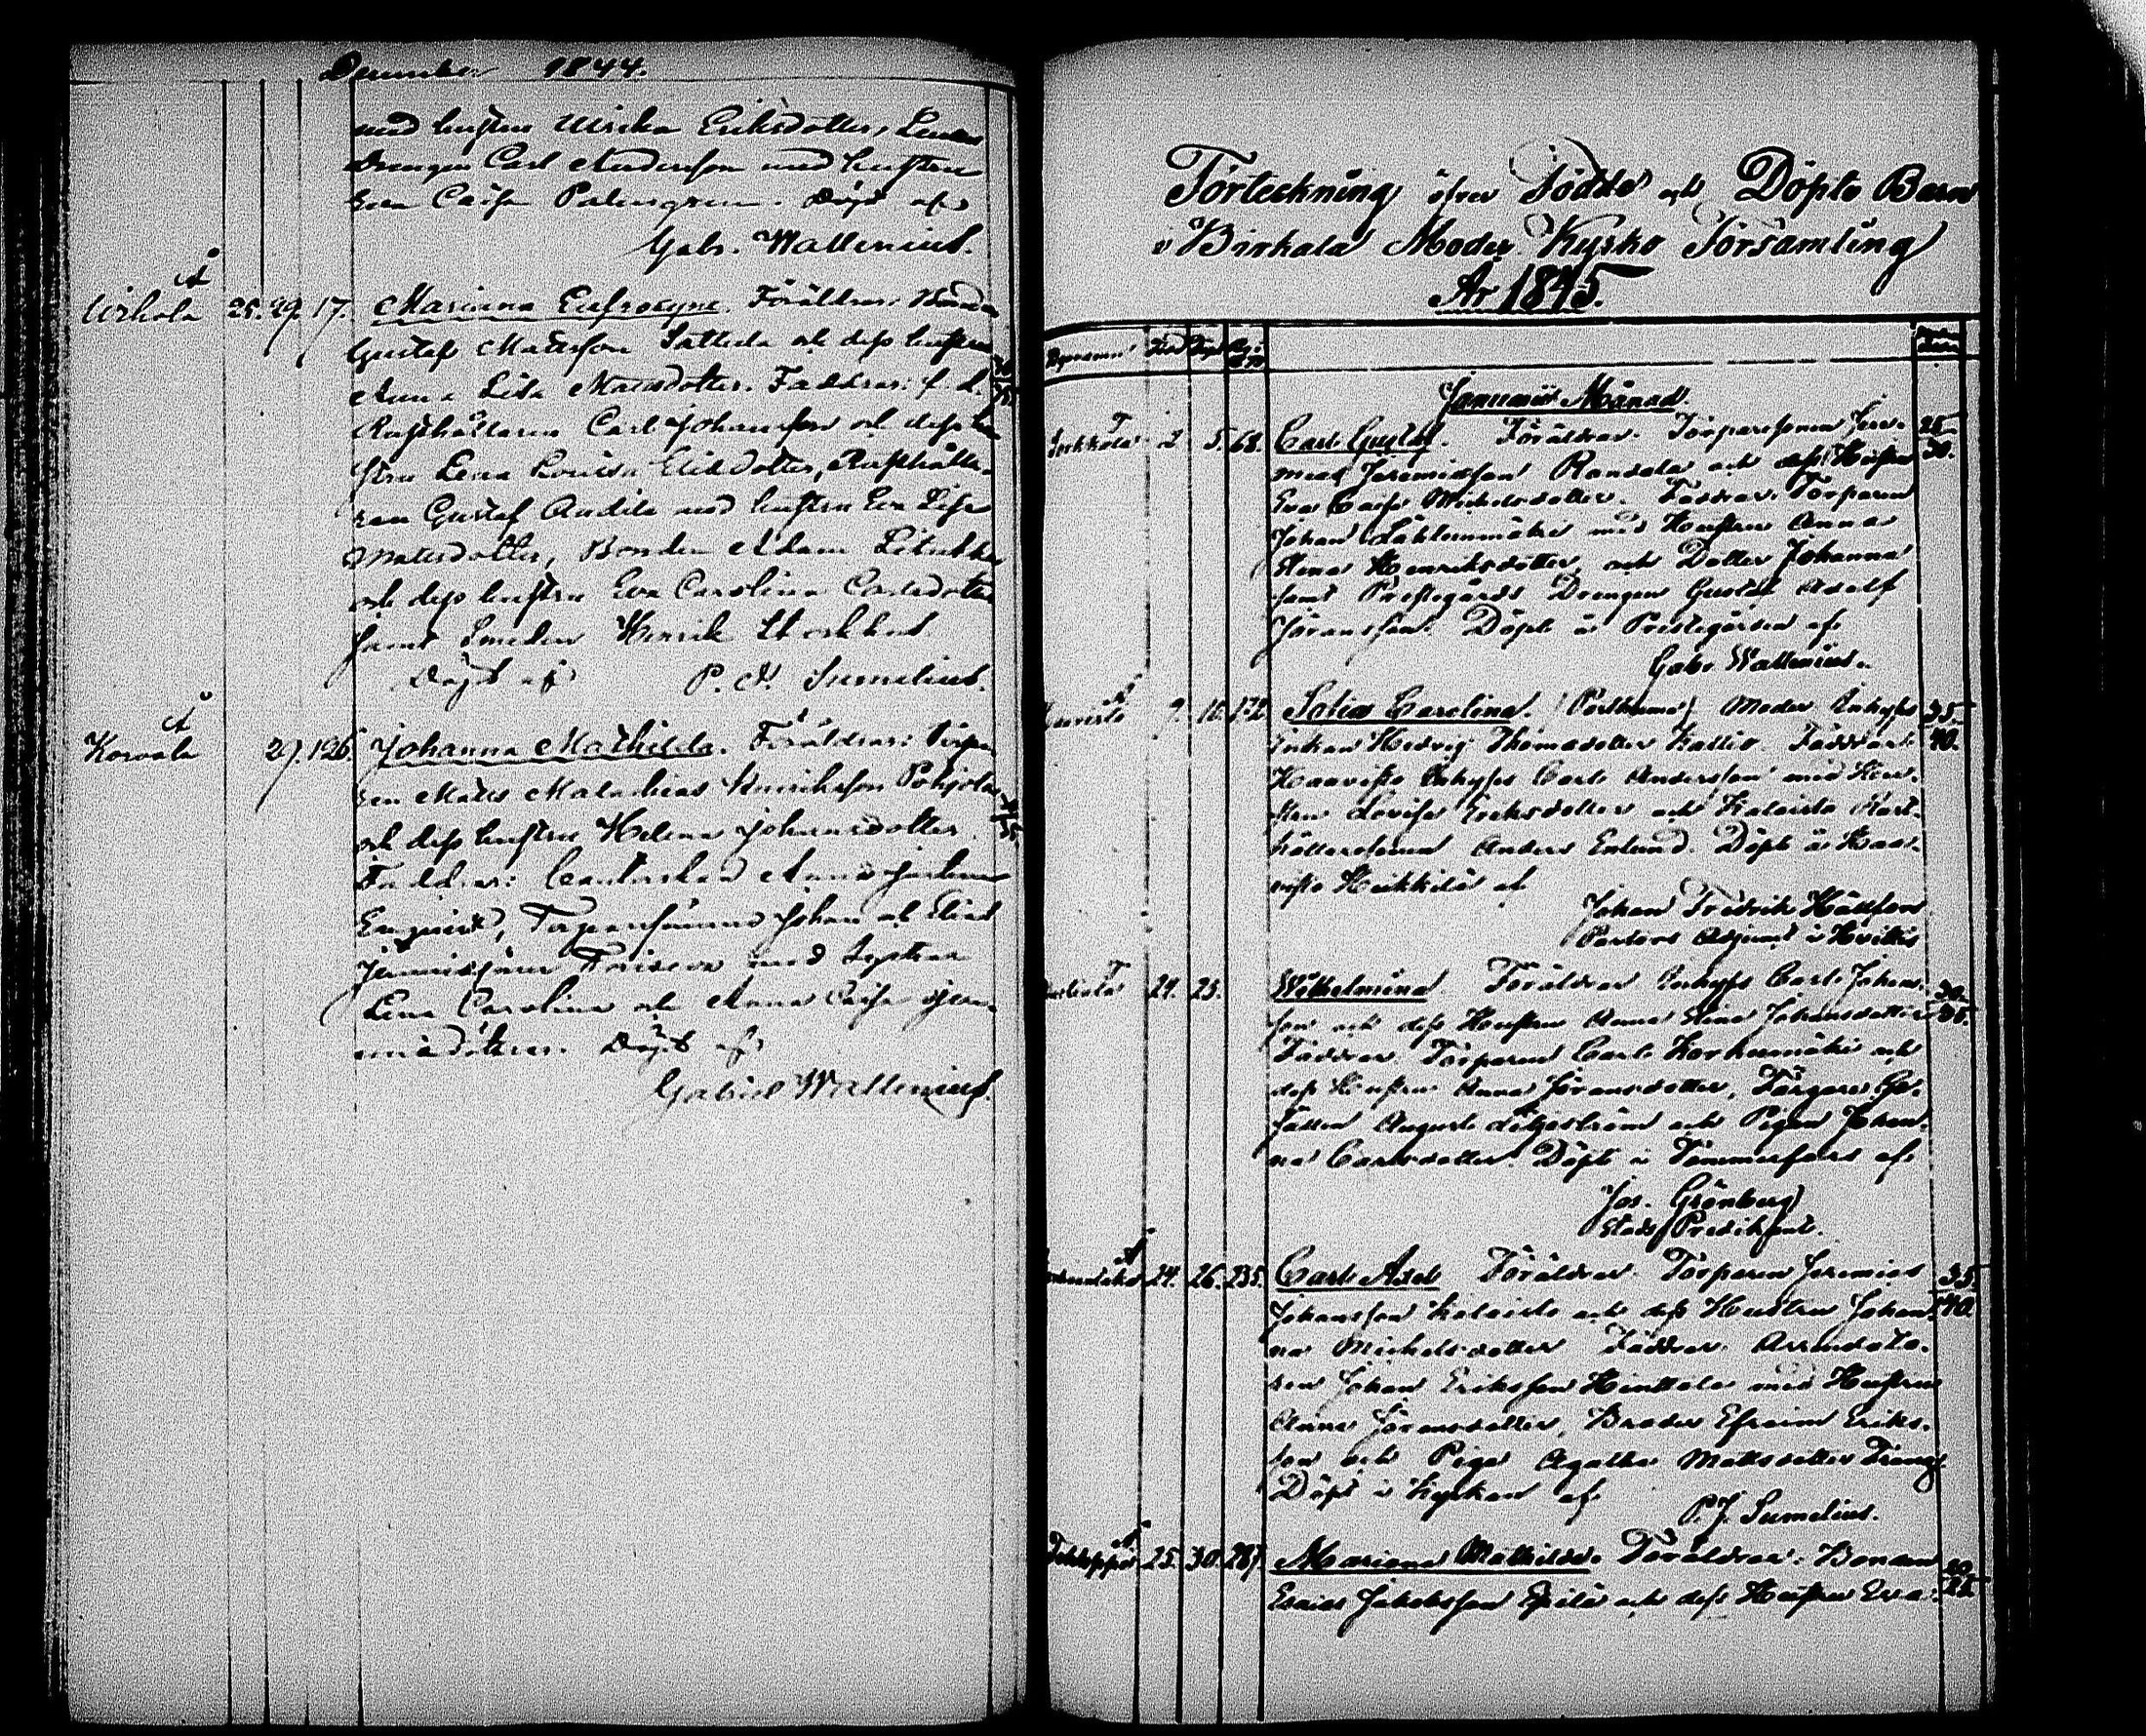 December 1844.
med hustru Ulrika Eriksdotter,
Drengen Carl Andersson med hustru
Eva Caisa Palmgren. Döpt af
Gabr. Wallenius.
Wirhola 25. 29. 17. Marianna Eufrosyne. Föräldrar:
Gustaf Mattsson Sattula och dess hustru
Anna Lisa Mattsdotter. Faddrar: f. d.
Rusthållaren Carl Johansson och dess hu-
stru Lena Lovisa Eriksdotter, Rusthålla-
ren Gustaf Andila med hustru Eva Lisa
Mattsdotter, Bonden Adam
och dess hustru Eva Carolina Carlsdotter
samt Smeden Henrik
Döpt af P. J. Sumelius.
Korvola 29. 126. Johanna Mathilda. Föräldrar: Torpa-
ren Matts Malachias Henriksson Pohjola
och dess hustru Helena Johansdotter.
Faddrar: Anna
Enqvist, Torparesönerne Johan och Elias
med Systrar
Lena Carolina och Anna Caisa Jere-
miædöttrar. Döpt af
Gabriel Wallenius.
Förteckning öfver Födde och Döpte Barn
i Birkala Moder Kyrko Församling
År 1845.
Byanamn Född Döpt
Januarii Månad
2. 5. 68. Carl Gustaf. Föräldrar. Torparesonen Jere-
mias Jeremiasson Ransala och dess Hustru
Eva Caisa Michelsdotter. Faddrar. Torparen
Johan Lähteenmäki med Hustru Anna
Stina Henriksdotter och Dotter Johanna
samt Prestegårds Drengen Gustaf Adolf
Göransson. Döpt i Prestegården af
Gabr. Wallenius.
9. 10. 172. Sofia Carolina. (Posthuma) Moder Enkan
Hedvig Thomasdotter Kallio. Faddrar.
Haavisto Inhyses Carl Andersson med Hus-
trun Lovisa Eriksdotter och Kalaisto Rust-
hållaresonen Anders Enlund. Döpt i Haa-
visto Heikkilä af
Johan Fredrik Hällfors
Pastors Adjunct i Hvittis
24. 25. Wilhelmina Föräldrar Inhyses Carl Johans-
son och dess Hustru Anna Stina Johansdotter
Faddrar. Torparen Carl Korkeemäki och
dess Hustru Anna Göransdotter, Färgare Ge-
sällen August Liljeström och Pigan Johan-
na Carlsdotter. Döpt i Tammerfors af
Jos. Grönberg
Stads Predikant.
24. 26. 235. Carl Axel Föräldrar. Torparen Jeremias
Johansson Kalaisto och dess Hustru Johan-
na Michelsdotter Faddrar. Arrendato-
ren Johan Eriksson Hinttala med Hustru
Anna Göransdotter, Broder Efraim Eriks-
son och Piga Agatha Mattsdotter
Döpt i Kyrkan af
P. J. Sumelius.
25. 30. 287. Mariana Mathilda. Föräldrar. Bonden
Esaias Jakobsson Epilä och dess Hustru Eva